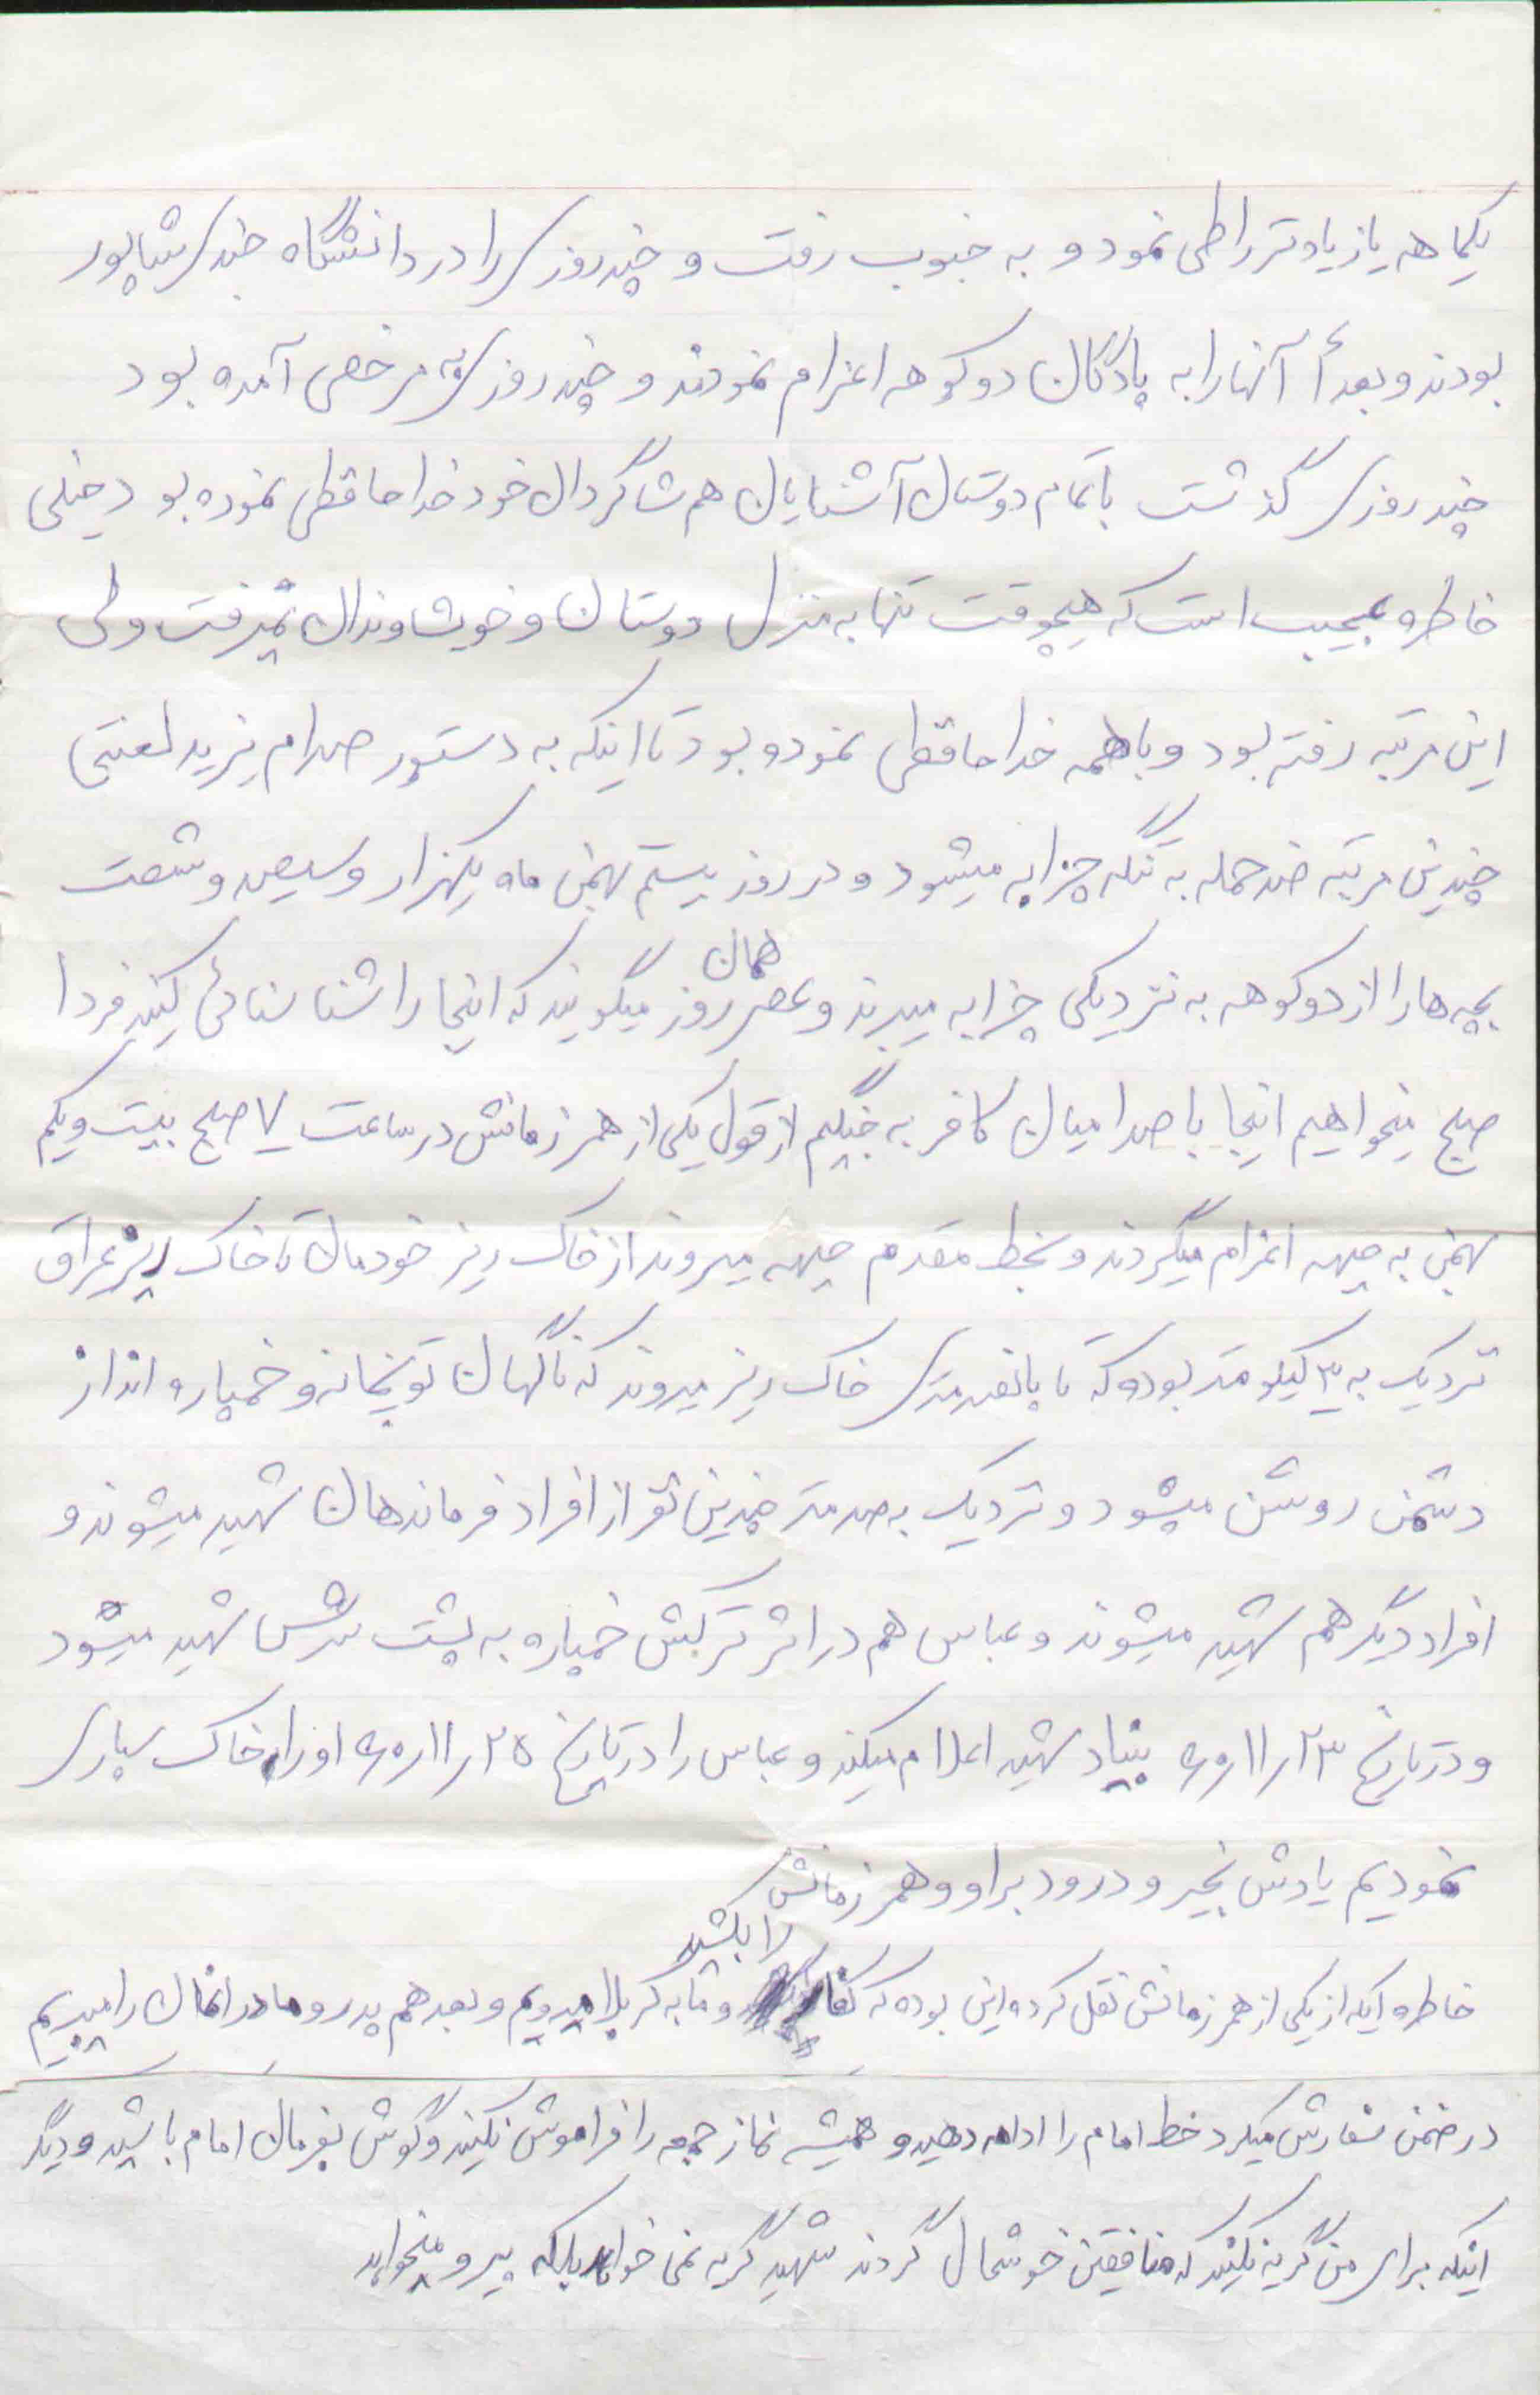 یکماهه یا زیادتر را طی نمود و به جنوب رفت و چند روزی را در دانشگاه جندی شاپور
بودند و بعداً آنها را به پادگان دوکوهه اعزام نمودند و چند روزی به مرخصی آمده بود
چند روزی گذشت با تمام دوستان آشنایان هم شاگردان خود خدا حافظی نموده بود خیلی
خاطره عجیب است که هیچوقت تنها به منزل دوستان و خویشاوندان نمیرفت ولی
این مرتبه رفته بود و با همه خدا حافظی نموده بود تا اینکه به دستور صدام یزید لعنتی
چندین مرتبه ضد حمله به تنگه چزابه میشود و در روز بیستم بهمن ماه یکهزار و سیصد و شصت
بچه ها را از دوکوهه به نزدیکی چزابه میبرند و عصر همان روز میگویند که اینجا را شناسائی کنید فردا
صبح میخواهیم اینجا با صدامیان کافر به جنگیم از قول یکی از همرزمانش در ساعت ۷ صبح بیست و یکم
بهمن به جبهه اعزام میگردند و بخط مقدم جبهه میروند از خاک ریز خودمان تا خاک ریز عراق
نزدیک به ۳ کیلومتر بوده که تا پانصد متری خاک ریز میروند که ناگهان توپخانه و خمپاره انداز
دشمن روشن میشود و نزدیک به صد متر چندین نفر از افراد فرماندهان شهید میشوند و
افراد دیگر هم شهید میشوند و عباس هم در اثر ترکش خمپاره به پشت سرش شهید میشود
و در تاریخ ۲۳ر۱۱ر۶۰ بنیاد شهید اعلام میکند و عباس را در تاریخ ۲۵ر۱۱ر۶۰ او را خاک سپاری
نمودیم یادش بخیر و درود بر او و همرزمانش
خاطره ایکه از یکی از همرزمانش نقل کرده این بوده که کفار را بکشید و ما به کربلا میرویم و بعد هم پدر و مادرانمان را میبریم
در ضمن سفارش میکرد خط امام را ادامه دهید و همیشه نماز جمعه را فراموش نکنید و گوش بفرمان امام باشید و دیگر
اینکه برای من گریه نکنید که منافقین خوشحال گردند شهید گریه نمی خواهد بلکه پیرو میخواهد